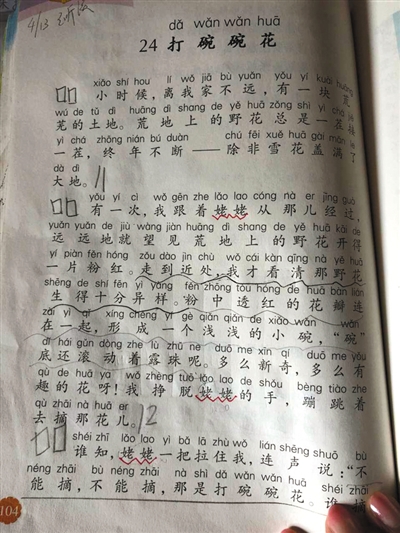 4/13
dǎ wǎn wǎn huā
24 打 碗 碗 花
xiǎo shí hou lí wǒ jiā bù yuǎn yǒu yí kuài huāng
小时候，离我家不远，有一块荒
wú de tǔ dì huāng dì shang de yě huā zǒng shì yì chá
芜的土地。荒地上的野花总是一茬接
yì chá zhōng nián bú duàn chú fēi xuě huā gài mǎn le
一茬，终年不断——除非雪花盖满了
dà dì
大地。
yǒu yí cì wǒ gēn zhe lǎo lao cóng nà er jīng guò
有一次，我跟着姥姥从那儿经过，
yuǎn yuǎn de jiù wàng jiàn huāng dì shang de yě huā kāi de
远远地就望见荒地上的野花开得
yí piàn fěn hóng zǒu dào jìn chù wǒ cái kàn qīng nà yě huā
一片粉红。走到近处，我才看清那野花
shēng de shí fēn yì yàng fěn zhōng tòu hóng de huā bàn lián
生得十分异样。粉中透红的花瓣连
zài yì qǐ xíng chéng yí gè qiǎn qiǎn de xiǎo wǎn wǎn
在一起，形成一个浅浅的小碗，“碗”
dǐ hái gǔn dòng zhe lù zhū ne duō me xīn qí duō me yǒu
底还滚动着露珠呢。多么新奇，多么有
qù de huā ya wǒ zhèng tuō lǎo lao de shǒu bèng tiào zhe
趣的花呀！我挣脱姥姥的手，蹦跳着
qù zhāi nà huā er
去摘那花儿。 12
shéi zhī lǎo lao yì bǎ lā zhù wǒ lián shēng shuō bù
谁知，姥姥一把拉住我，连声说：“不
néng zhāi bù néng zhāi nà shì dǎ wǎn wǎn huā shéi zhāi
能摘，不能摘，那是打碗碗花。谁摘
104